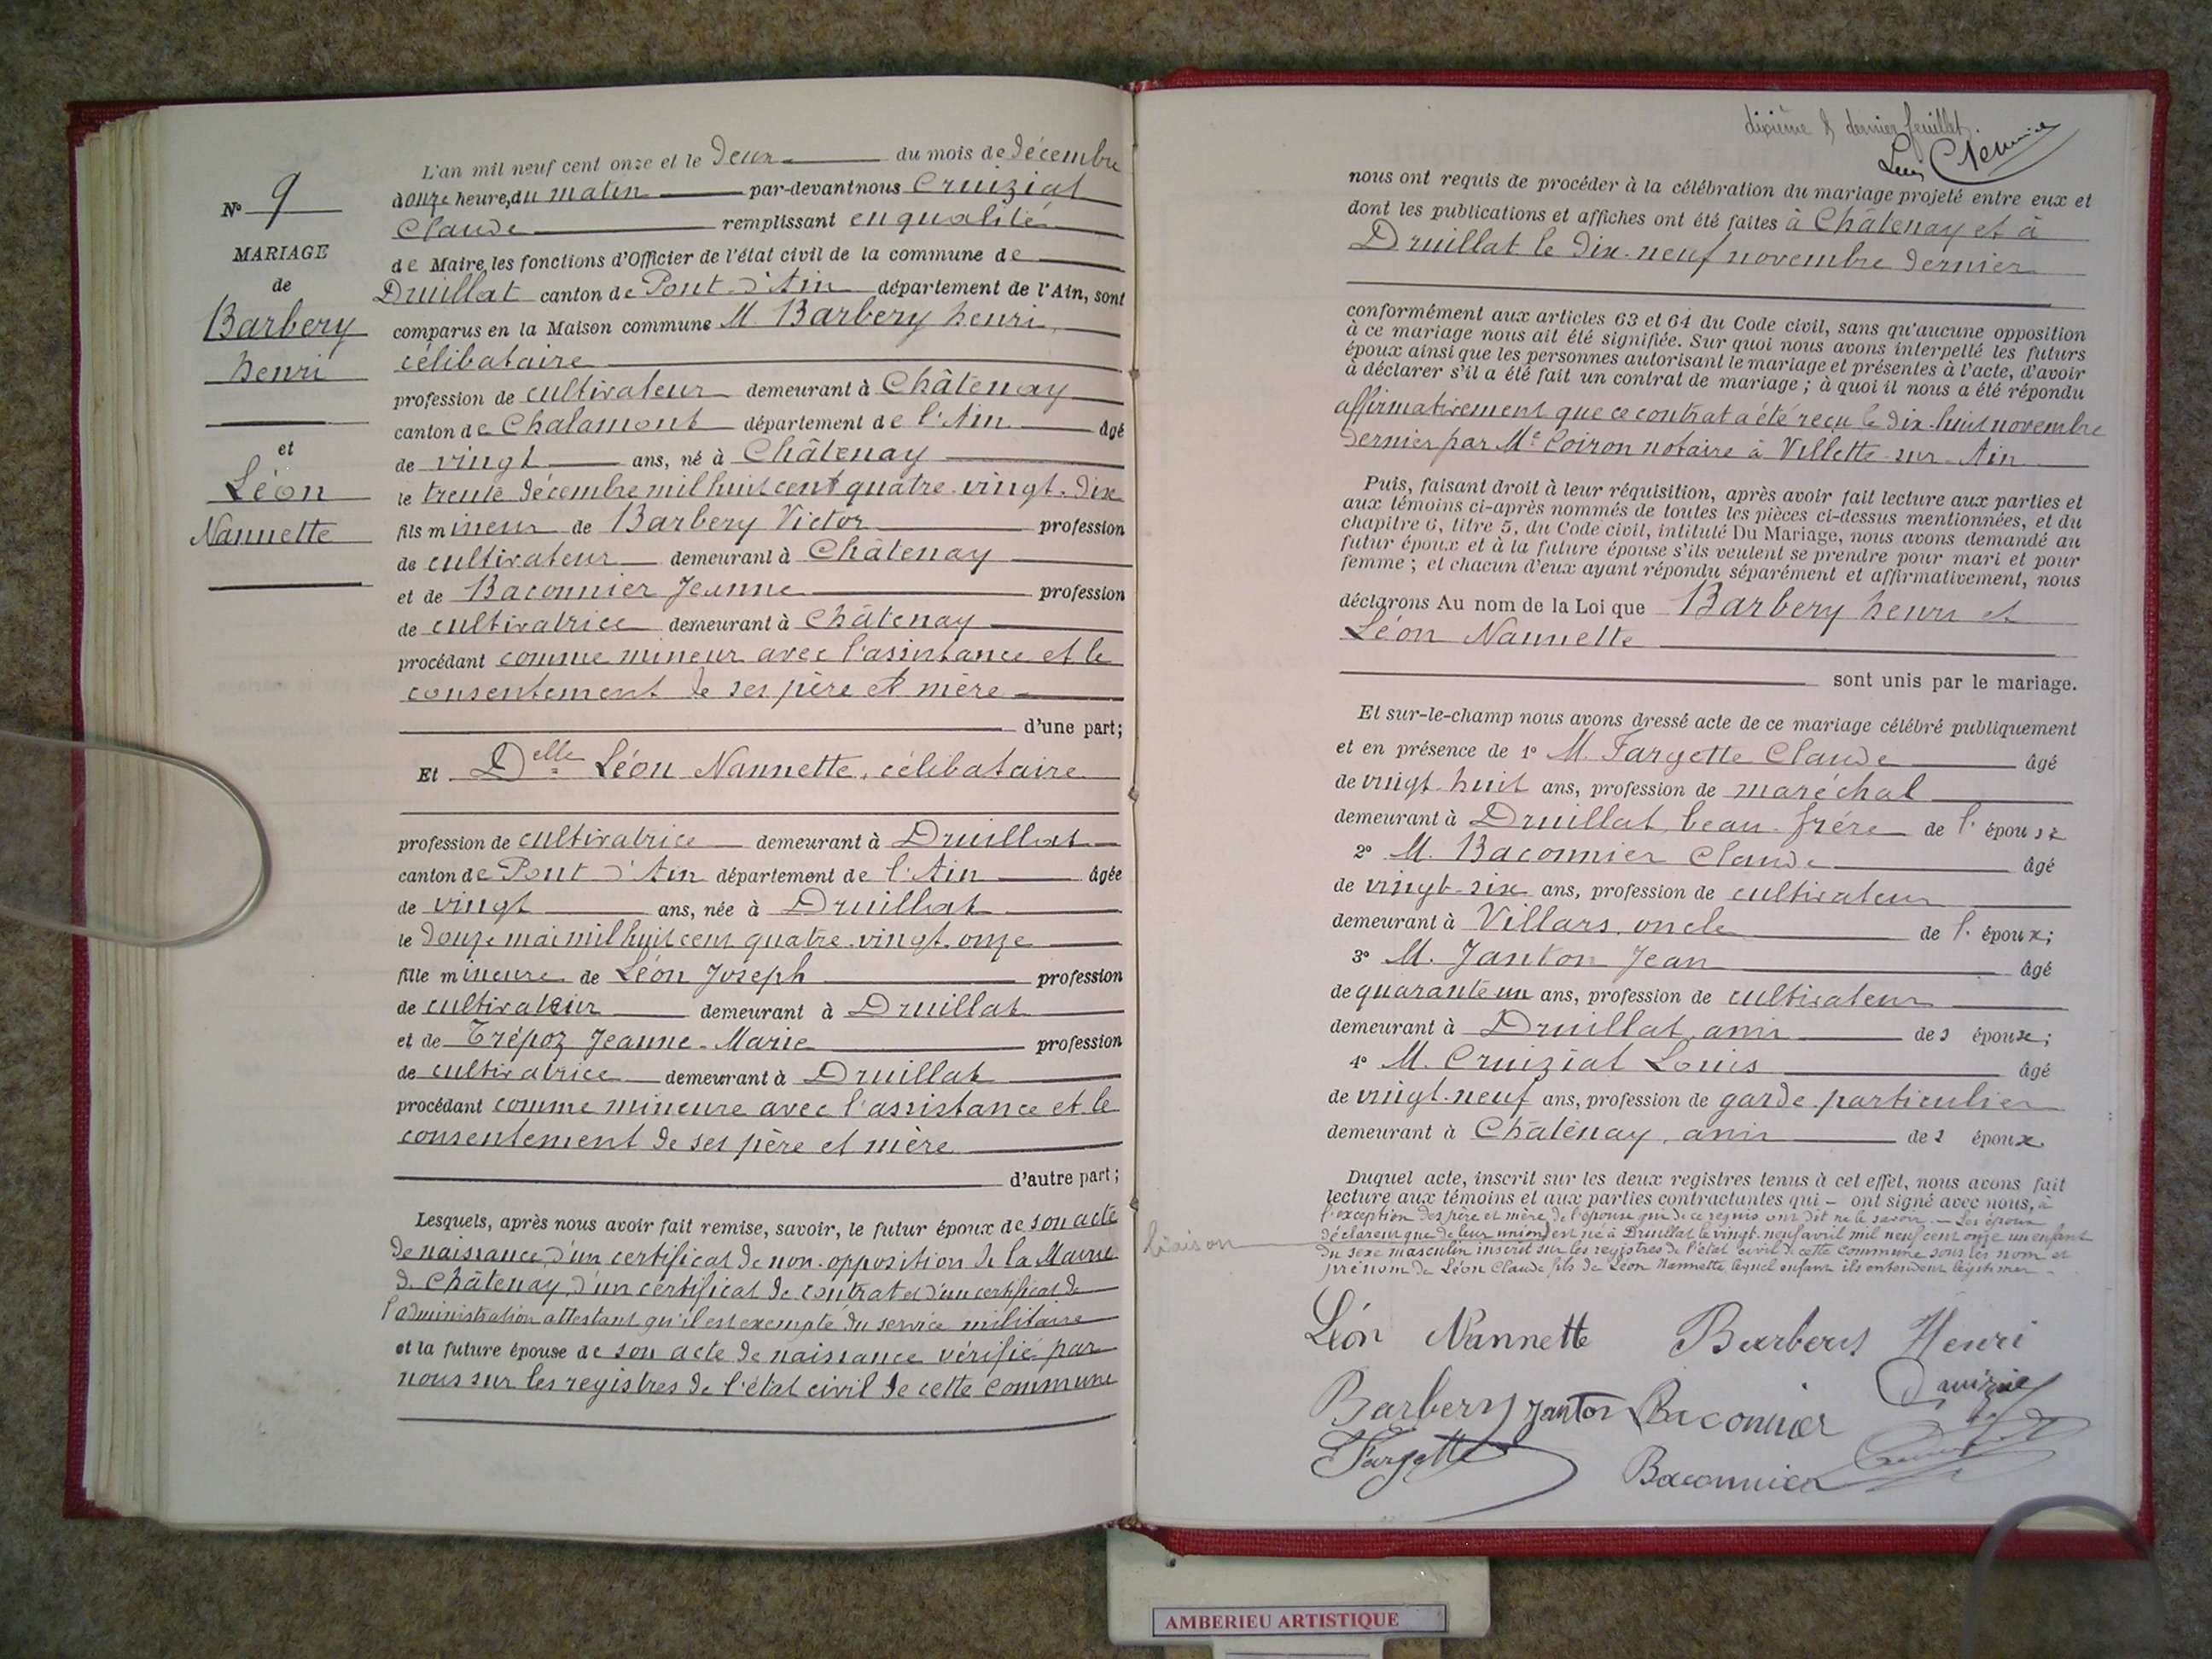 N° 9
MARIAGE
de
Barbery
henri
et
Léon
Nannette
L'an mil neuf cent onze et le deux du mois de décembre
à onze heure, du matin par-devant nous Cruiziat
Claude remplissant en qualité
de Maire les fonctions d'Officier de l'état civil de la commune de
Druillat canton de Pont d'Ain département de l'Ain, sont
comparus en la Maison commune M Barbery henri,
célibataire
profession de cultivateur demeurant à Châtenay
canton de Chalamont département de l'Ain âgé
de vingt ans, né à Châtenay
le trente décembre mil huit cent quatre-vingt-dix
fils mineur de Barbery Victor profession
de cultivateur demeurant à Châtenay
et de Baconnier Jeanne profession
de cultivatrice demeurant à Châtenay
procédant comme mineur avec l'assistance et le
consentement de ses père et mère
d'une part;
Et Delle Léon Nannette, célibataire
profession de cultivatrice demeurant à Druillat
canton de Pont d'Ain département de l'Ain âgée
de vingt ans, née à Druillat
le douze mai mil huit cent quatre-vingt-onze
fille mineure de Léon Joseph profession
de cultivateur demeurant à Druillat
et de Trépoz Jeanne-Marie profession
de cultivatrice demeurant à Druillat
procédant comme mineure avec l'assistance et le
consentement de ses père et mère
d'autre part;
Lesquels, après nous avoir fait remise, savoir, le futur époux de son acte
de naissance, d'un certificat de non-opposition de la Mairie
de Châtenay, d'un certificat de contrat et d'un certificat de
l'administration attestant qu'il est exempté du service militaire
et la future épouse de son acte de naissance vérifié par
nous sur les registres de l'état civil de cette commune
dixième & dernier feuillet.
nous ont requis de procéder à la célébration du mariage projeté entre eux et
dont les publications et affiches ont été faites à Châtenay et à
Druillat le dix-neuf novembre dernier
conformément aux articles 63 et 64 du Code civil, sans qu'aucune opposition
à ce mariage nous ait été signifiée. Sur quoi nous avons interpellé les futurs
époux ainsi que les personnes autorisant le mariage et présentes à l'acte, d'avoir
à déclarer s'il a été fait un contrat de mariage; à quoi il nous a été répondu
affirmativement que ce contrat a été reçu le dix-huit novembre
dernier par Me Coiron notaire à Villette-sur-Ain
Puis, faisant droit à leur réquisition, après avoir fait lecture aux parties et
aux témoins ci-après nommés de toutes les pièces ci-dessus mentionnées, et du
chapitre 6, titre 5, du Code civil, intitulé Du Mariage, nous avons demandé au
futur époux et à la future épouse s'ils veulent se prendre pour mari et pour
femme; et chacun d'eux ayant répondu séparément et affirmativement, nous
déclarons Au nom de la Loi que Barbery henri et
Léon Nannette
sont unis par le mariage.
Et sur-le-champ nous avons dressé acte de ce mariage célébré publiquement
et en présence de 1° M. Fargette Claude âgé
de vingt-huit ans, profession de maréchal
demeurant à Druillat, beau-frère de l'épouse
2° M. Baconnier Claude âgé
de vingt-six ans, profession de cultivateur
demeurant à Villars, oncle de l'époux;
3° M. Janton Jean âgé
de quarante un ans, profession de cultivateur
demeurant à Druillat, ami des époux;
4° M. Cruiziat Louis âgé
de vingt-neuf ans, profession de garde particulier
demeurant à Châtenay, ami des époux.
Duquel acte, inscrit sur les deux registres tenus à cet effet, nous avons fait
lecture aux témoins et aux parties contractantes qui – ont signé avec nous, à
l'exception des père et mère de l'épouse qui de ce requis ont dit ne le savoir. – Les époux
déclarent que de leur union est né à Druillat le vingt-neuf avril mil neuf cent onze un enfant
du sexe masculin inscrit sur les registres de l'état civil de cette commune sous les nom et
prénom de Léon Claude fils de Léon Nannette, lequel enfant ils entendent légitimer.
liaison
Léon Nannette Barbery Henri
Barbery Janton Baconnier
Fargette Baconnier
AMBERIEU ARTISTIQUE